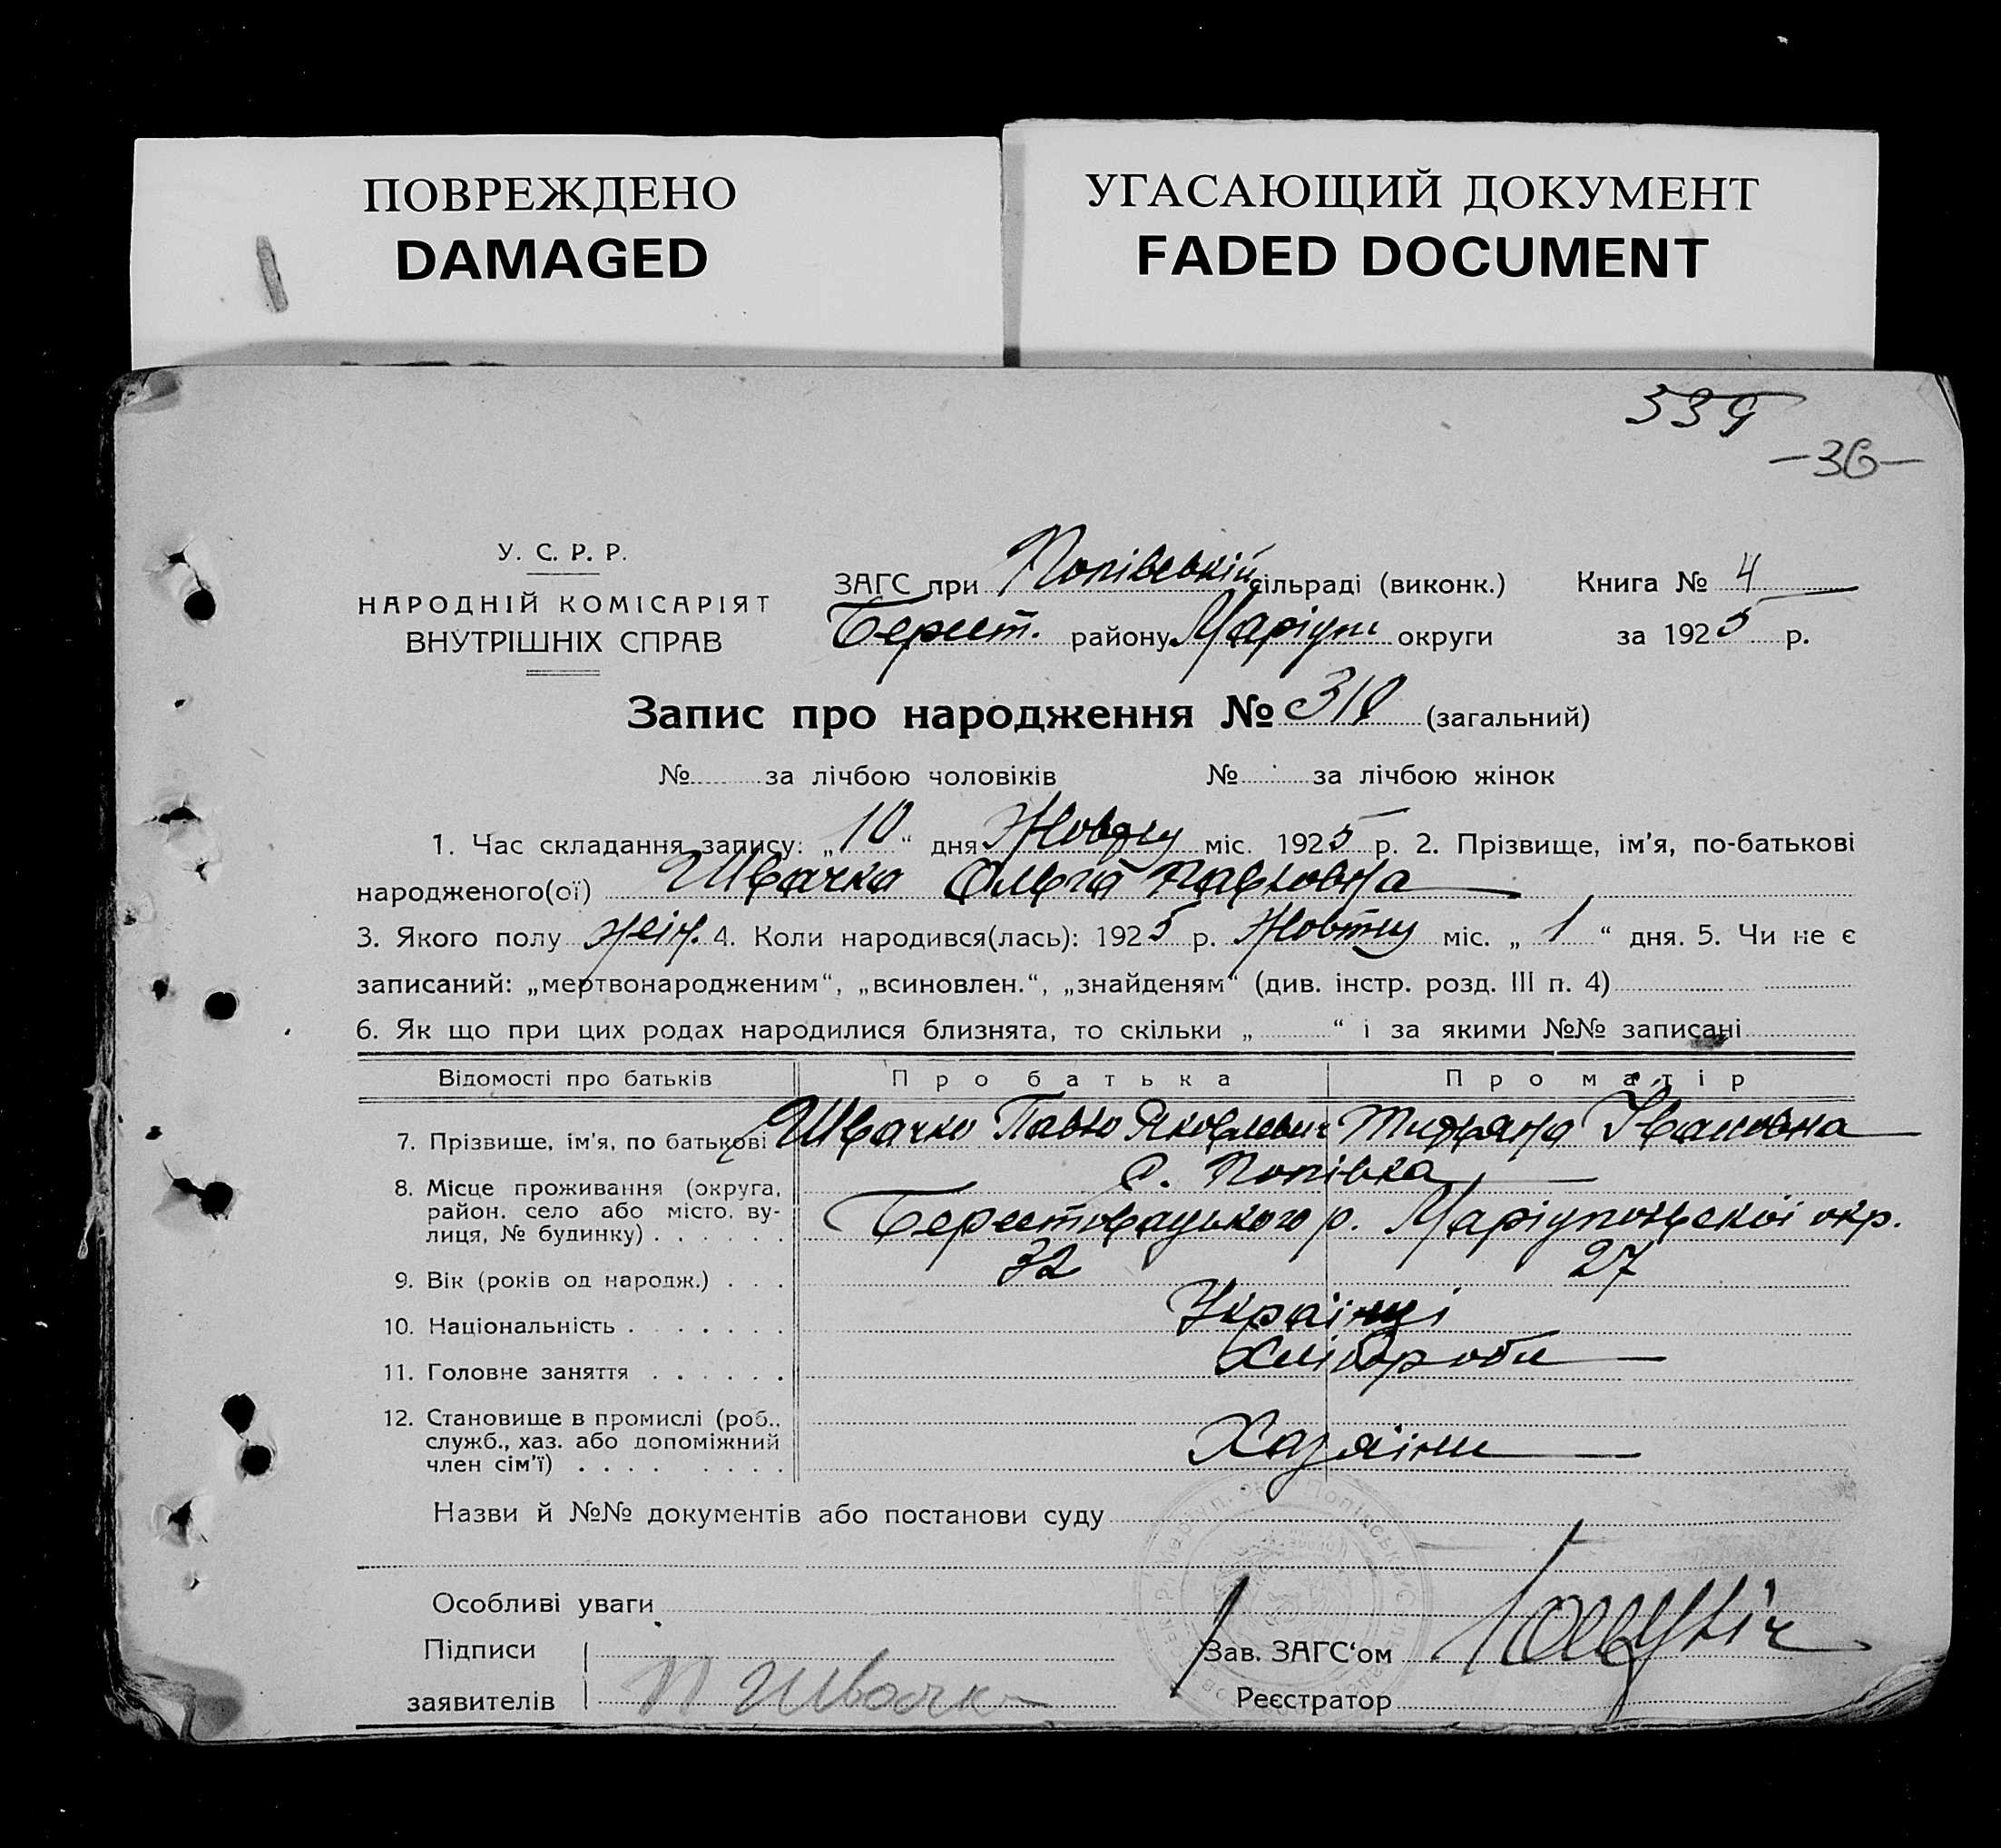 ПОВРЕЖДЕНО
DAMAGED
УГАСАЮЩИЙ ДОКУМЕНТ
FADED DOCUMENT
539
—36—
У. С. Р. Р.
НАРОДНІЙ КОМІСАРІЯТ
ВНУТРІШНІХ СПРАВ
ЗАГС при Попівській сільраді (виконк.) Книга № 4
Берест. району Маріуп округи за 1925 р.
Запис про народження № 318 (загальний)
№ за лічбою чоловіків № за лічбою жінок
1. Час складання запису: „10“ дня Жовтну міс. 1925 р. 2. Прізвище, ім'я, по-батькові
народженого(ої) Швачко Ольга Павловна
3. Якого полу жін. 4. Коли народився(лась): 1925 р. Жовтну міс. „1“ дня. 5. Чи не є
записаний: „мертвонародженим“, „всиновлен.“, „знайденям“ (див. інстр. розд. III п. 4)
6. Як що при цих родах народилися близнята, то скільки „ “ і за якими №№ записані
Відомості про батьків Про батька Про матір
7. Прізвище, ім'я, по батькові Швачко Павло Яковлевич Титяна Івановна
8. Місце проживання (округа, район, село або місто, вулиця, № будинку) с. Попівка
Берестовацького р. Маріупольскоі окр.
9. Вік (років од народж.) 32 27
10. Національність Українці
11. Головне заняття Хлібороби
12. Становище в промислі (роб., служб., хаз. або допоміжний член сім'ї) Хазяіни
Назви й №№ документів або постанови суду
Особливі уваги
Підписи
заявителів П Швачко
Зав. ЗАГС'ом
Реєстратор